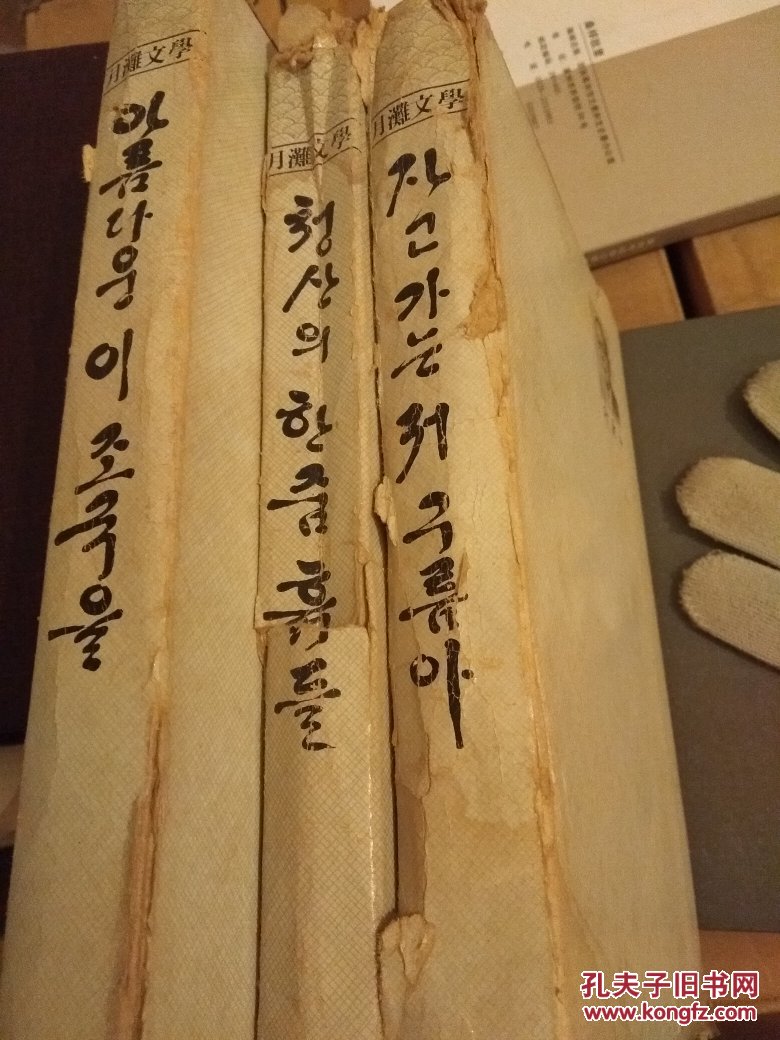 月灘文學
아름다운 이 조국을
月灘文學
청산의 한줌 흙들
月灘文學
자고 가는 저 구름아
孔夫子旧书网
www.kongfz.com